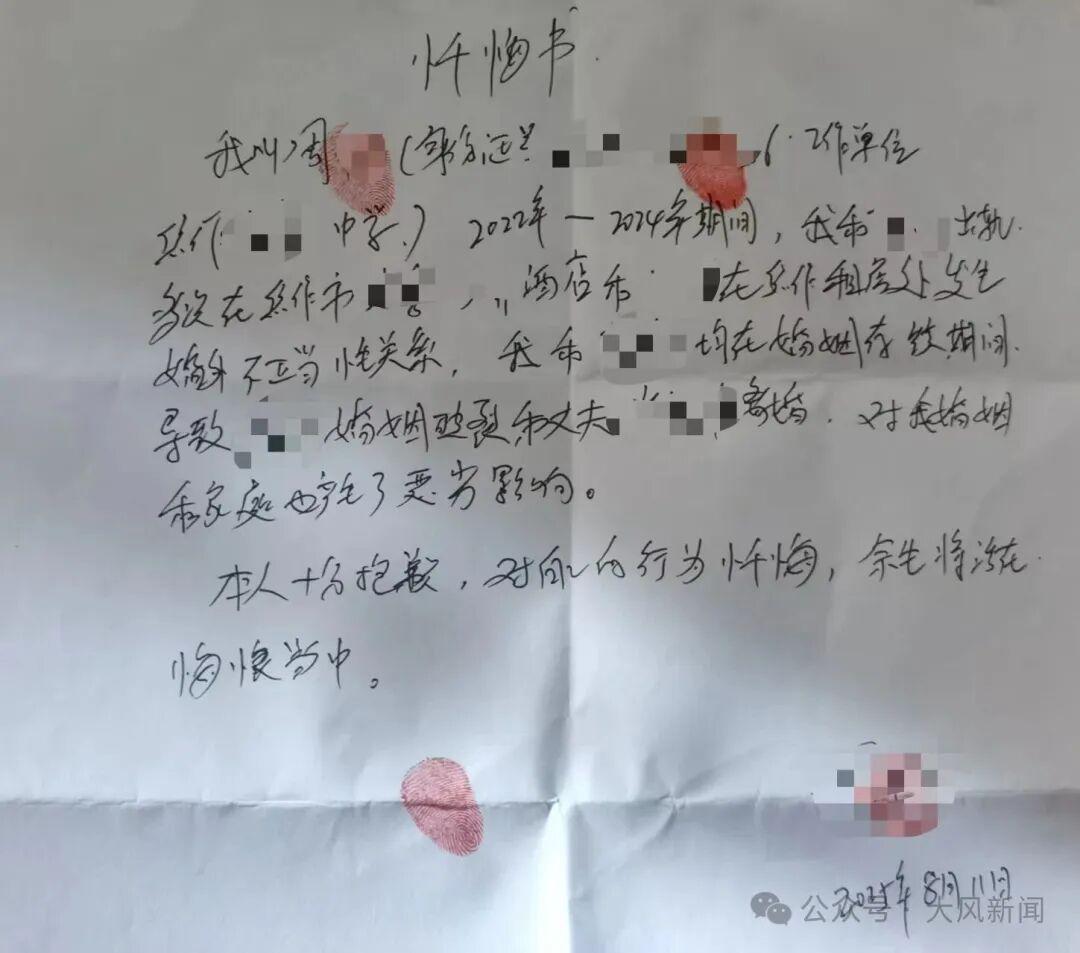 忏悔书.
我叫周（身份证号 6.工作单位
焦作 中学.）2022年—2024年期间，我和 出轨.
多次在焦作市 ，酒店和 在焦作租房处发生
婚外不正当性关系，我和 均在婚姻存续期间.
导致 婚姻破裂和丈夫 离婚. 对我婚姻
和家庭也产生了恶劣影响。
本人十分抱歉，对自己的行为忏悔，余生将活在.
悔恨当中。
2025年8月11日
公众号 大风新闻